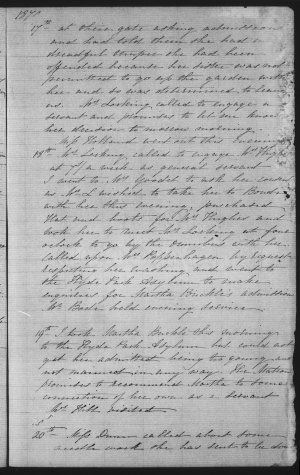 1870
17th at their gate asking admission
and had told them she had a
dreadful temper she had been
offended because her sister was not
permitted to go up the garden with
her and so was determined to leave
us. Mrs Locking called to engage a
servant and promises to let me know
her decision to morrow morning.
Miss Holland went out this evening
18th Mrs Locking called to engage Mrs Hughes
at 7/ a week as general servant
I went to Mrs to ask her
as Mrs L wished to take her to
with her this evening, purchased
Hat and boots for Mrs Hughes and
took her to meet Mrs Locking at four
oclock to go by the omnibus with her
Called upon Mrs Poppenhagen by request
respecting her washing and went to
the Hyde Park Asylum to make
enquiries for Martha Buckle's admission
Mr held evening service
19th I took Martha Buckle this morning
to the Hyde Park Asylum but could not
get her admitted being too young and
not in any way. The Matron
promises to recommend Martha to some
connection of her own as a servant
Mrs Hill visited
20th Miss Dunn called about some
needle work she has sent to be done